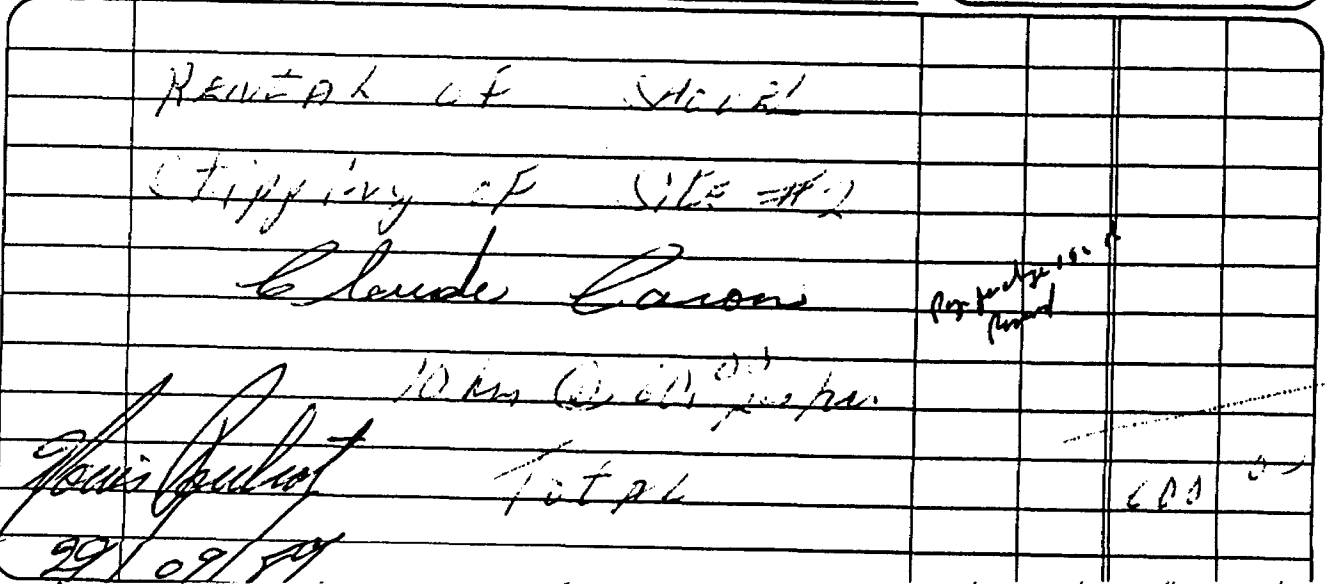 RENTAL OF SHOVEL
Stripping OF SITE #2
Claude Caron
10 hrs @ 60.00 per hr.
Total 600 00
Louis
29/09/89